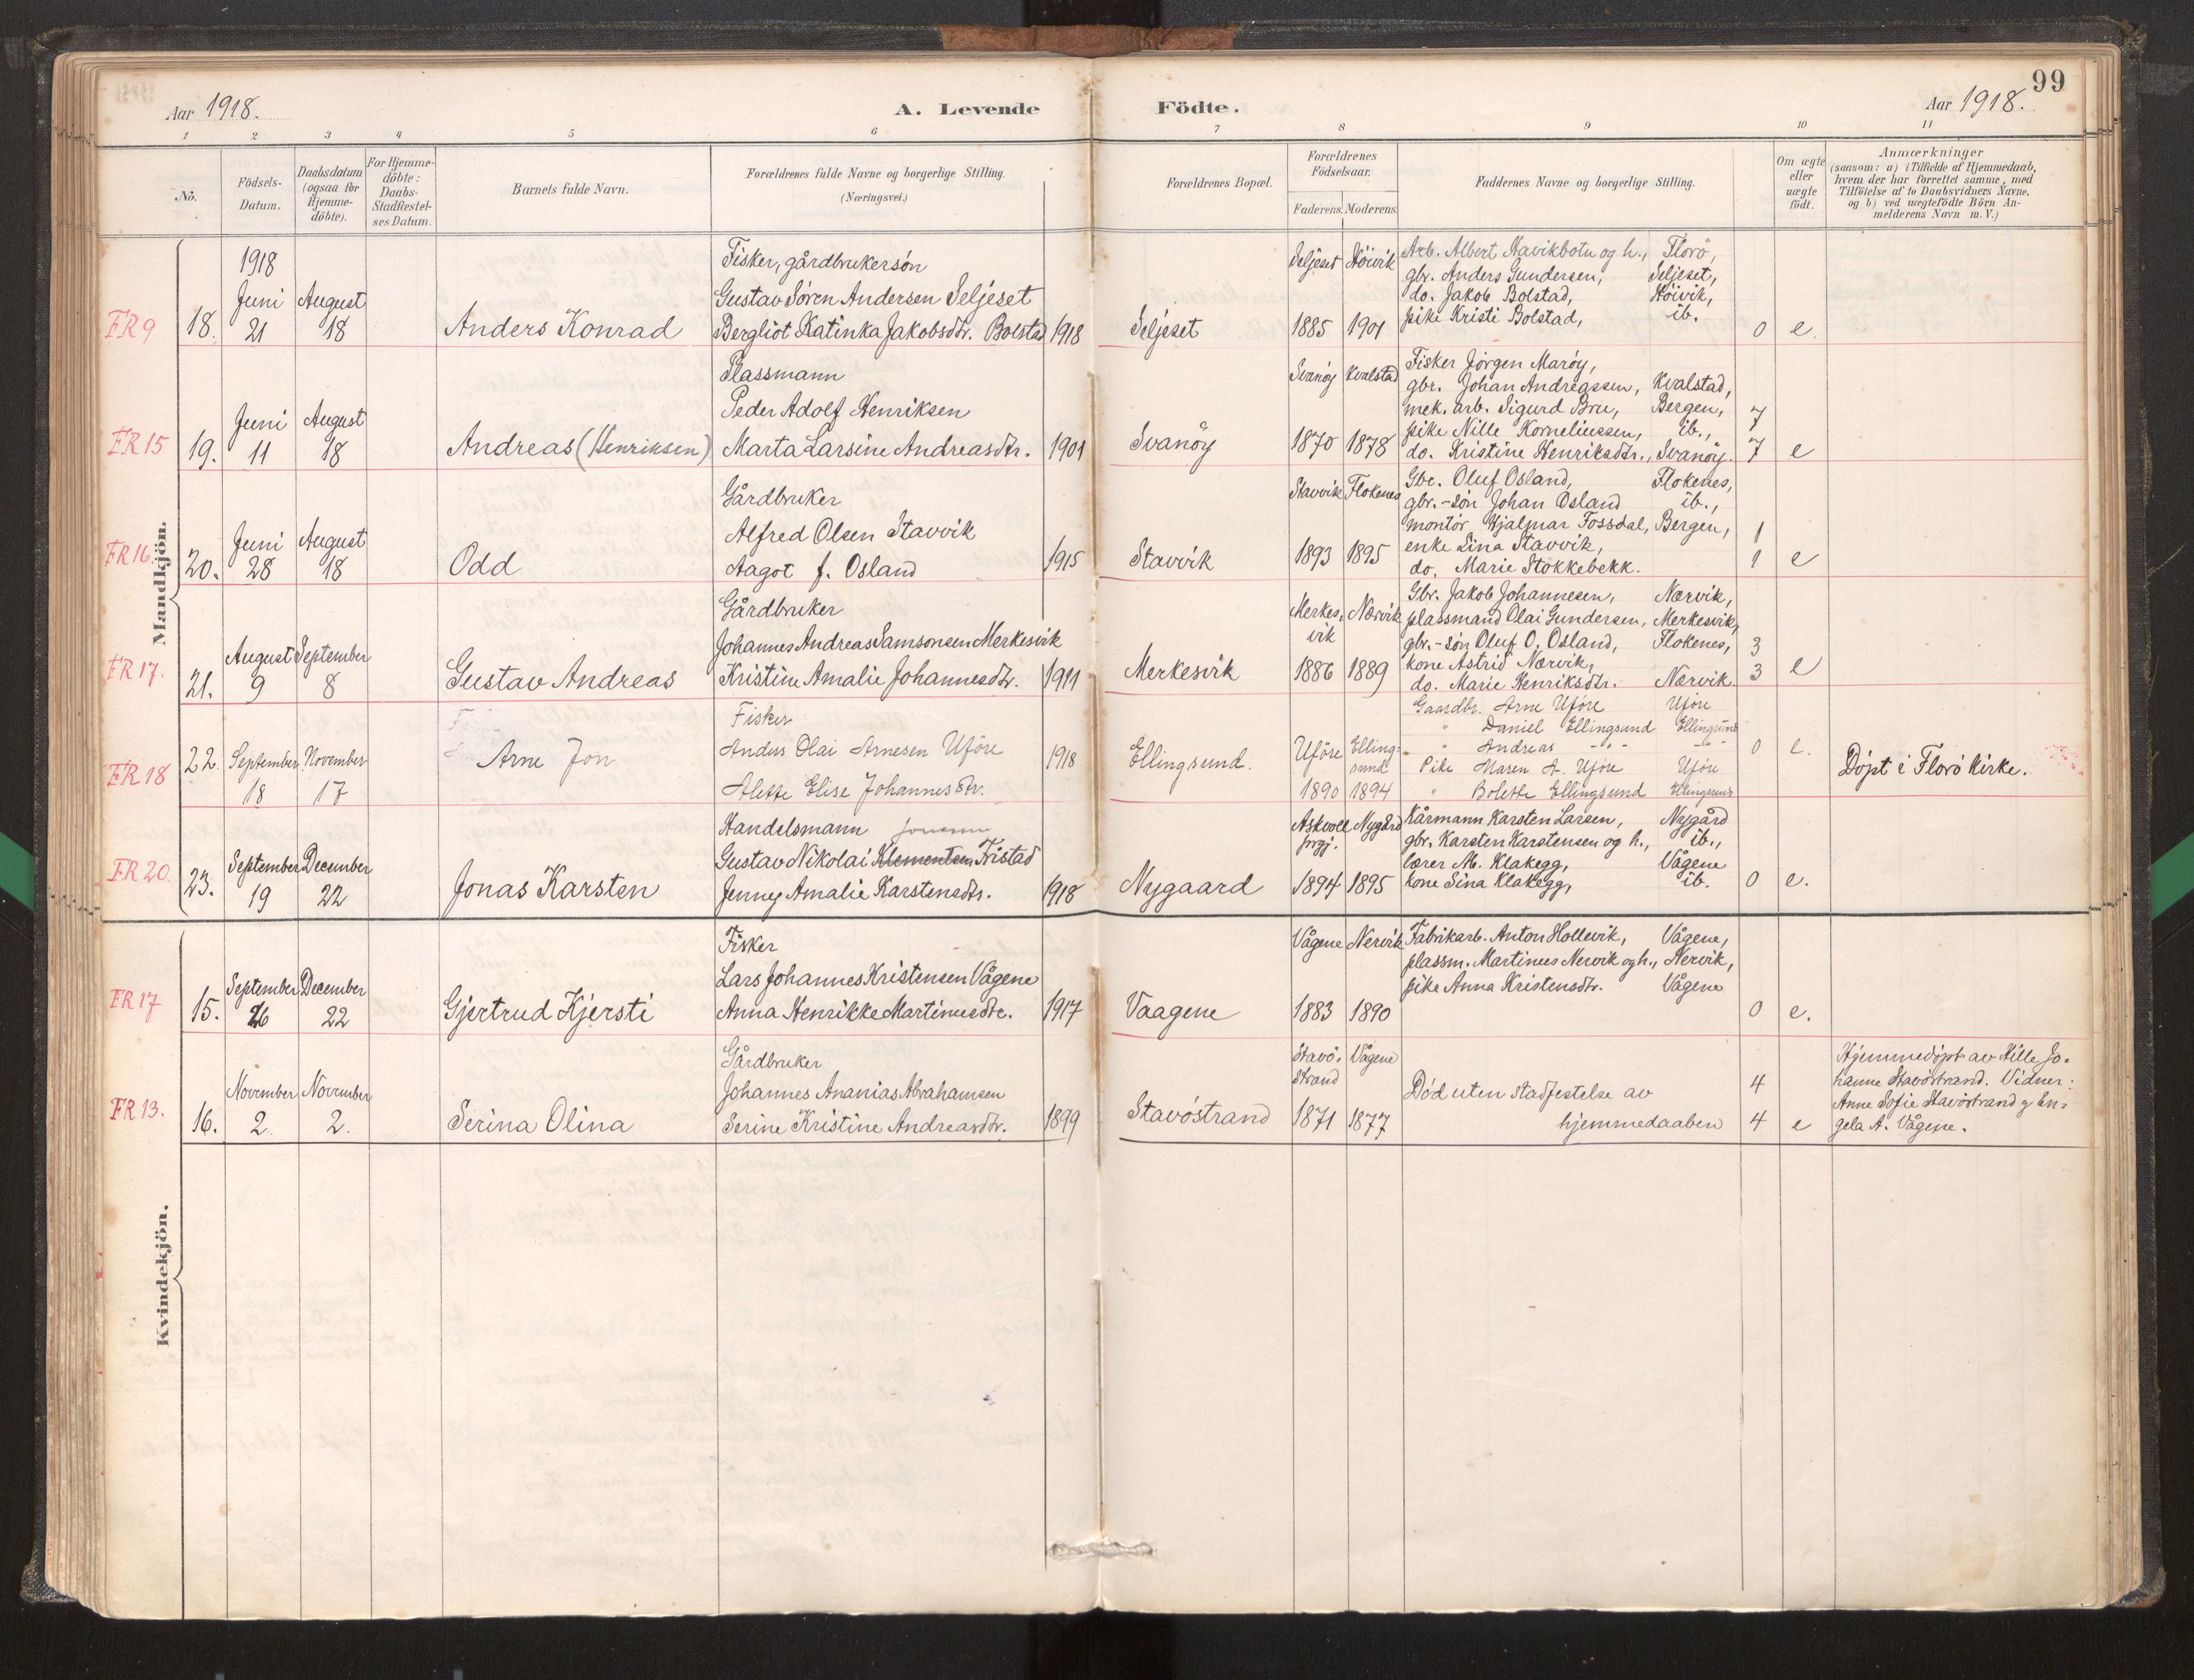 99
Aar 1918.
A. Levende Födte.
Aar 1918.
1 2 3 4 5 6 7 8 9 10 11
No.
Födsels-
Datum.
Daabsdatum
(ogsaa for
Hjemme-
döbte).
For Hjemme-
döbte:
Daabs-
Stadfæstel-
ses Datum.
Barnets fulde Navn.
Forældrenes fulde Navne og borgerlige Stilling.
(Næringsvei.)
Forældrenes Bopæl.
Forældrenes
Födselsaar.
Faderens. Moderens.
Faddernes Navne og borgerlige Stilling.
Om ægte
eller
uægte
födt.
Anmærkninger
(saasom: a) i Tilfælde af Hjemmedaab,
hvem der har forrettet samme, med
Tilföielse af to Daabsvidners Navne.
og b) ved uægtefödte Börn An-
melderens Navn m. V.)
Mandkjön.
FR 9
18.
1918
Juni
21
August
18
Anders Konrad
Fisker, gårdbrukersön
Gustav Sören Andersen Seljeset
Bergliot Katinka Jakobsdtr. Bolstad
1918
Seljeset
Seljeset
1885
Höivik
1901
Arb. Albert Navikbotn og h., Florö,
gbr. Anders Gundersen, Seljeset,
do. Jakob Bolstad, Höivik,
pike Kristi Bolstad, ib.
0
e.
FR 15
19.
Juni
11
August
18
Andreas (Henriksen)
Plassmann
Peder Adolf Henriksen
Marta Larsine Andreasdtr.
1901
Svanöy
Svanöy
1870
Kvalstad
1878
Fisker Jörgen Maröy,
gbr. Johan Andreassen, Kvalstad,
mek. arb. Sigurd Bru, Bergen,
pike Nille Korneliussen, ib.,
do. Kristine Henriksdtr., Svanöy.
7
7
e
FR 16.
20.
Juni
28
August
18
Odd
Gårdbruker
Alfred Olsen Stavvik
Aagot f. Osland
1915
Stavvik
Stavvik
1893
Flokenes
1895
Gbr. Oluf Osland, Flokenes,
gbr.-sön Johan Osland ib.,
montör Hjalmar Fossdal, Bergen,
enke Lina Stavvik,
do. Marie Stokkebekk.
1
1
e
FR 17.
21.
August
9
September
8
Gustav Andreas
Gårdbruker
Johannes Andreas Samsonsen Merkesvik
Kristine Amalie Johannesdtr.
1911
Merkesvik
Merkes-
vik
1886
Nærvik
1889
Gbr. Jakob Johannesen, Nærvik,
plassmand Olai Gundersen, Merkesvik,
gbr.-sön Oluf O. Osland, Flokenes,
kone Astrid Nærvik,
do. Marie Henriksdtr. Nærvik.
3
3
e
FR 18
22.
September
18
November
17
Arne Jon
Fisker
Anders Olai Arnesen Uföre
Alette Elise Johannesdtr.
1918
Ellingsund.
Uföre
1890
Elling-
sund
1894
Gaardbr. Arne Uföre Uföre
" Daniel Ellingsund Ellingsund
" Andreas -"- -"-
Pike Maren A. Uföre Uföre
" Bolette Ellingsund Ellingsund
0
e.
Döpt i Florö kirke.
FR 20.
23.
September
19
December
22
Jonas Karsten
Handelsmann
Gustav Nikolai Klementsen Tristad
Jenny Amalie Karstensdtr.
1918
Nygaard
Askvoll
prgj.
1894
Nygård
1895
Kårmann Karsten Larsen, Nygård
gbr. Karsten Karstensen og h., ib.,
lærer M. Klakegg, Vågene
kone Sina Klakegg, ib.
0
e.
Kvindekjön.
FR 17
15.
September
26
December
22
Gjertrud Kjersti
Fisker
Lars Johannes Kristensen Vågene
Anna Henrikke Martinusdtr.
1917
Vaagene
Vågene
1883
Nervik
1890
Fabrikarb. Anton Hollevik, Vågene,
plassm. Martinus Nervik og h., Nervik,
pike Anna Kristensdtr. Vågene
0
e.
FR 13.
16.
November
2.
November
2.
Serina Olina
Gårdbruker
Johannes Ananias Abrahamsen
Serine Kristine Andreasdtr.
1899
Stavöstrand
Stavö-
strand
1871
Vågene
1877
Död uten stadfestelse av
hjemmedaaben
4
4
e
Hjemmedöpt av Nille Jo-
hanne Stavöstrand. Vidner:
Anne Sofie Stavöstrand g En-
gela A. Vågene.